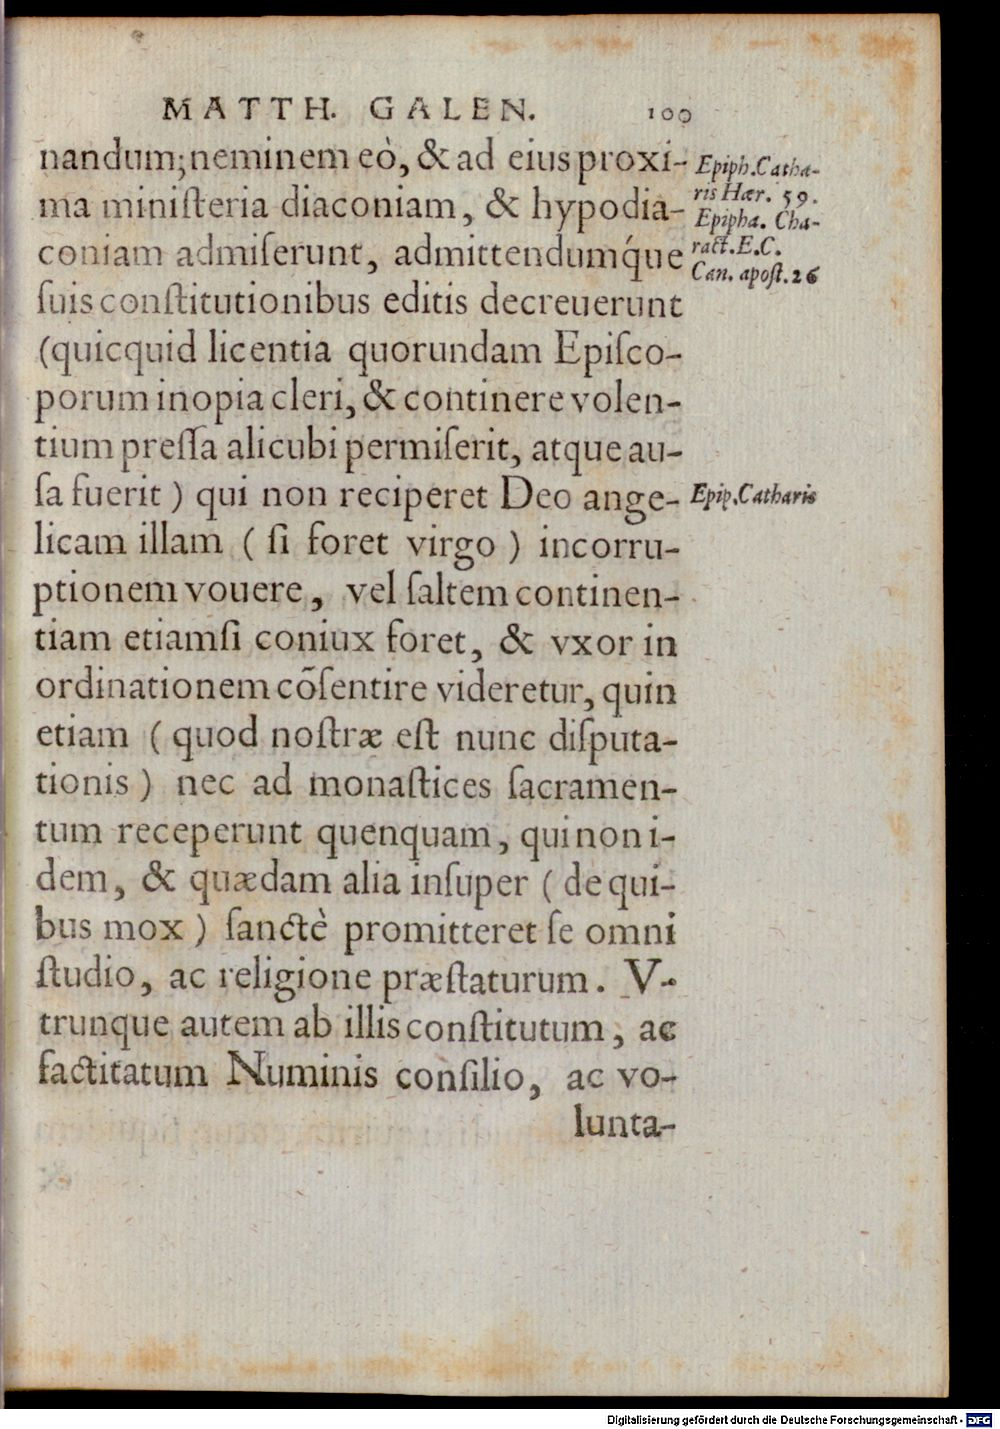 MATTH. GALEN. 100
nandum; neminem eò, & ad eius proxi-
ma miniſteria diaconiam, & hypodia-
coniam admiſerunt, admittendumq́ue
ſuis conſtitutionibus editis decreuerunt
(quicquid licentia quorundam Epiſco-
porum inopia cleri, & continere volen-
tium preſſa alicubi permiſerit, atque au-
ſa fuerit) qui non reciperet Deo ange-
licam illam (ſi foret virgo) incorru-
ptionem vouere, vel ſaltem continen-
tiam etiamſi coniux foret, & vxor in
ordinationem cõſentire videretur, quin
etiam (quod noſtræ eſt nunc diſputa-
tionis) nec ad monaſtices ſacramen-
tum receperunt quenquam, qui non i-
dem, & quædam alia inſuper (de qui-
bus mox) ſanctè promitteret ſe omni
ſtudio, ac religione præſtaturum. V-
trunque autem ab illis conſtitutum, ac
factitatum Numinis conſilio, ac vo-
lunta-
Epiph. Catha-
ris Hær. 59.
Epipha. Cha-
ract. E.C.
Can. apoſt. 26
Epip. Catharis
Digitalisierung gefördert durch die Deutsche Forschungsgemeinschaft - DFG